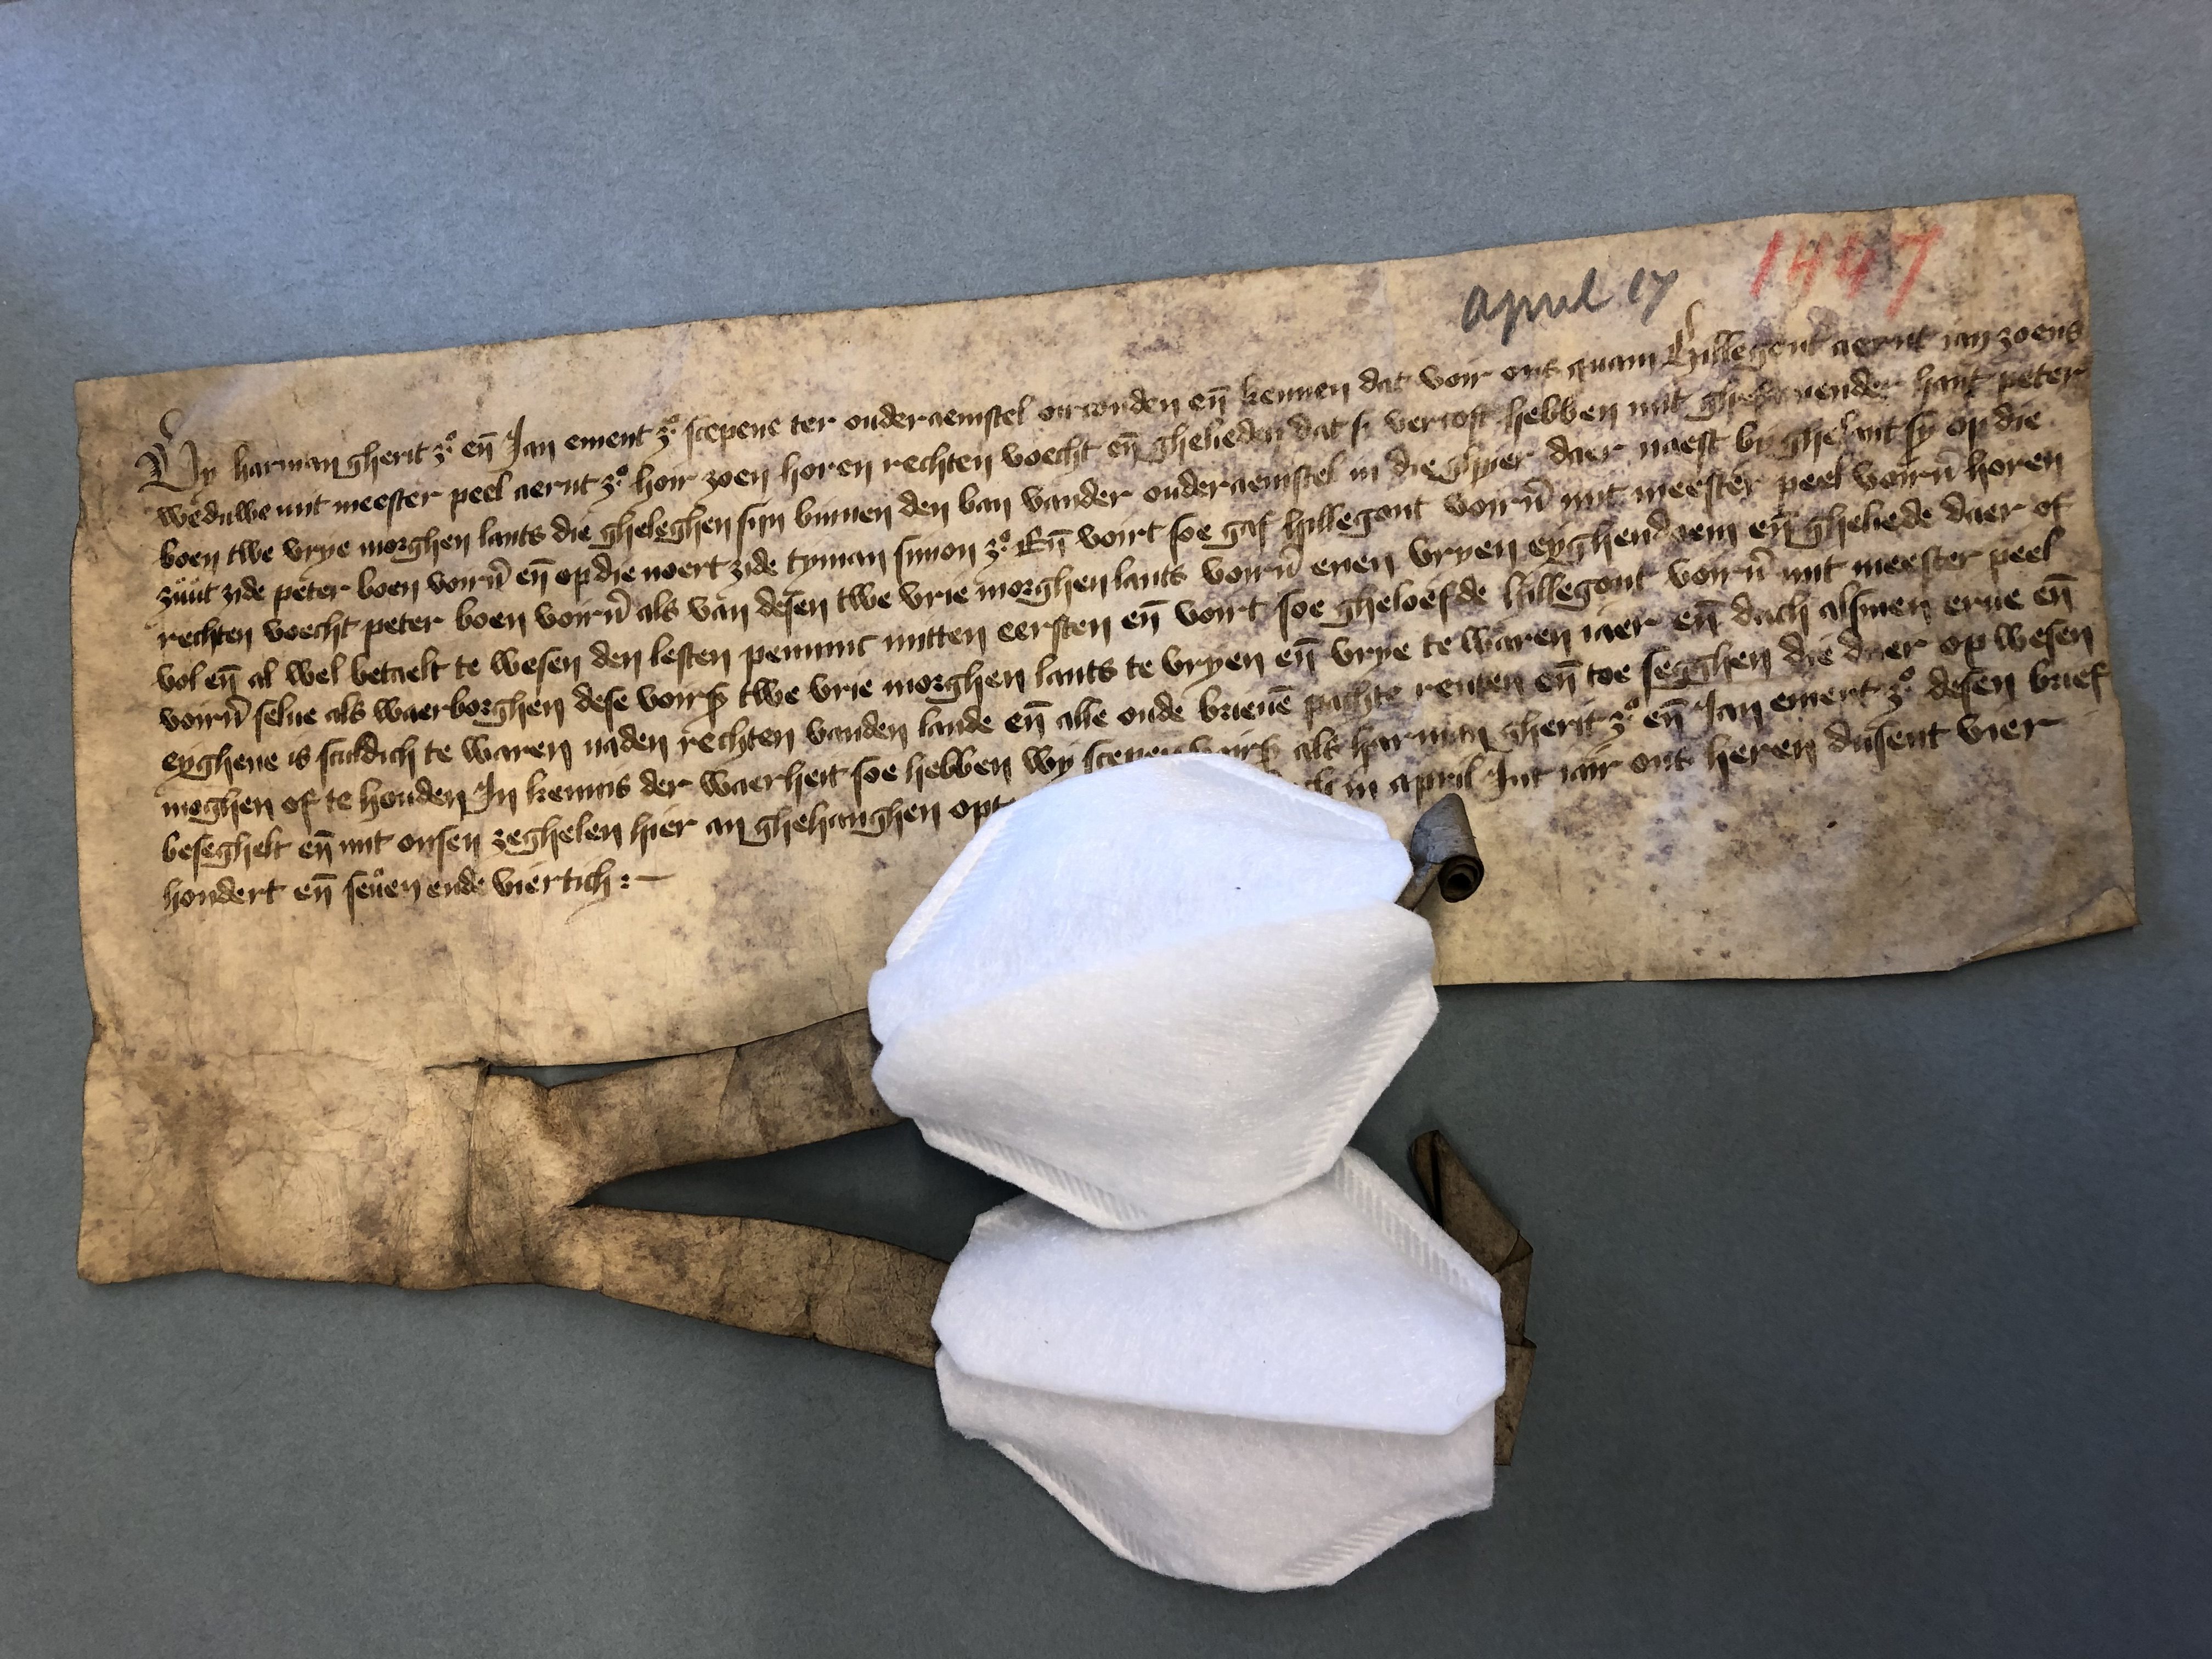 april 17 1447
Wy harman gherit zo en̄ Jan ement zo scepene ter ouderaemstel orconden en̄ kennen dat voir ons quam hillegont aernt ian zoens
weduwe mit meester peel aernt zo hoir zoen horen rechten voecht en̄ ghelieden dat si vercoft hebben mit ghesamender hant peter
boen twe vrye morghen lants die gheleghen sijn binnen den ban vander ouderaemstel in die daer naest by ghelant sy op die
zuut zide peter boen voirn̄ en̄ op die noert zide tyman simon zo En̄ voirt soe gaf hillegont voirn̄ mit meester peel voirn̄ horen
rechten voecht peter boen voirn̄ als van desen twe vrie morghen lants voirn̄ enen vryen eyghendoem en̄ gheliede daer of
vol en̄ al wel betaelt te wesen den lesten pennint mitten eersten en̄ voirt soe gheloefde hillegont voirn̄ mit meester peel
voirn̄ selue als waerborghen dese voirs twe vrie morghen lants te vryen en̄ vrye te waren iaer en̄ dach alsmen erue en̄
eyghene is sculdich te waren naden rechten vanden lande en̄ alle oude brieuē pachte renten en̄ toe segghen die daer op wesen
moghen of te houden In kennis der waerheit soe hebben wy scepen voirs als harman gherit zo en̄ Jan ement zo desen brief
beseghelt en̄ mit onsen zeghelen hier an ghehanghen opt in april Int iair ons heren dusent vier
hondert en̄ seuen ende viertich :-